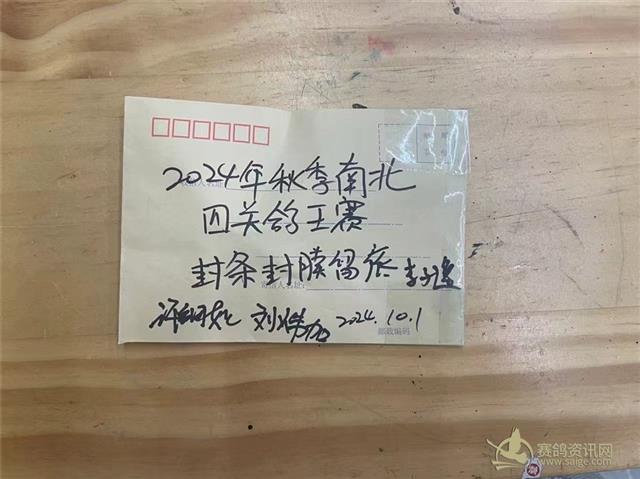 2024年秋季南北
四关鸽王赛
封条封膜留底
2024.10.1
邮政编码
赛鸽资讯网
www.saige.com